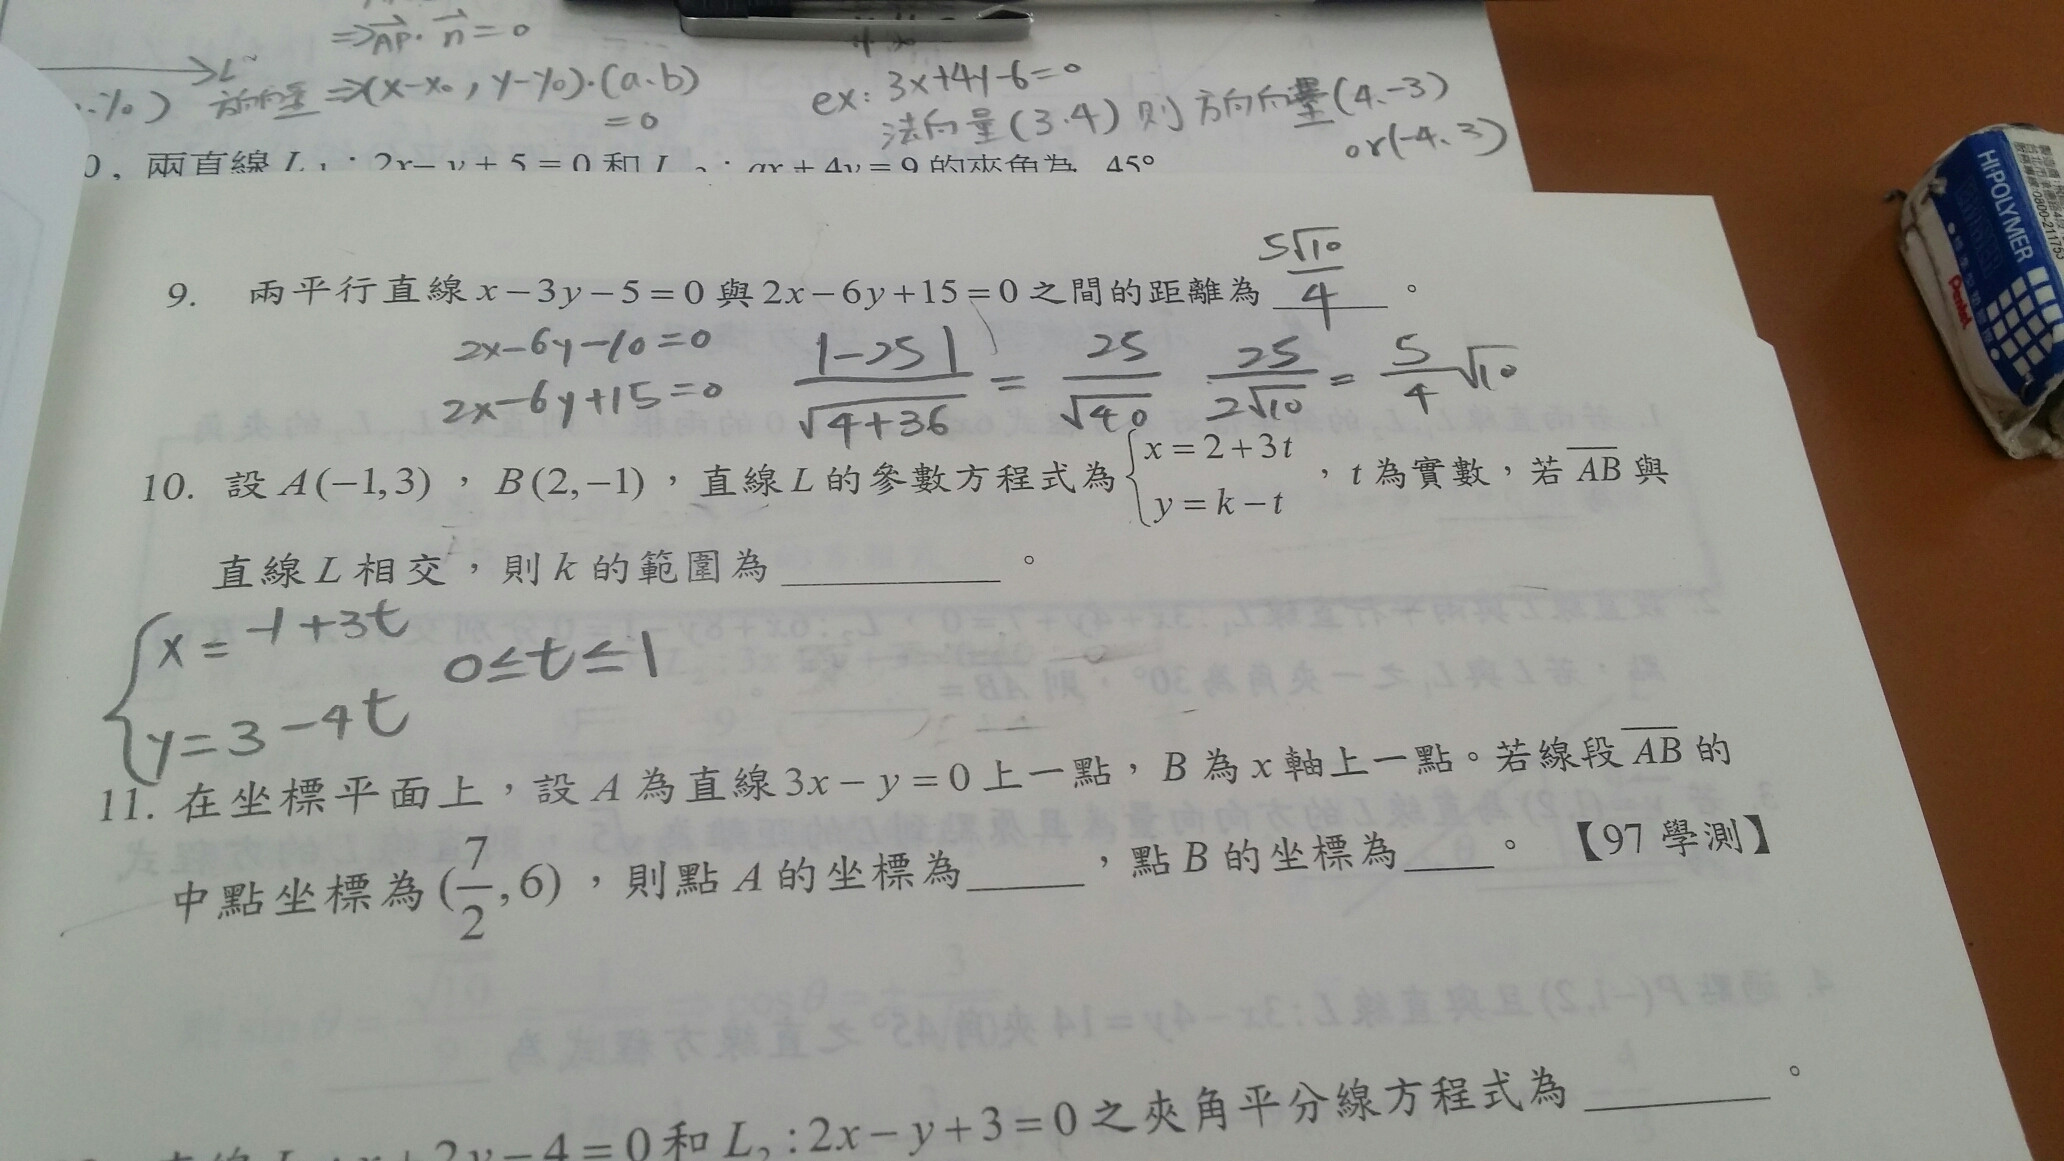 ⇒AP·n=0
L
方向向量 ⇒(x-x₀, y-y₀)·(a、b)
=0
ex: 3x+4y-6=0
法向量(3、4)則方向向量(4、-3)
or(-4、3)
兩直線 L₁:2x-y+5=0和L₂:ax+4y=9的夾角為 45°
HI-POLYMER
Pentel
0800-211753
9. 兩平行直線 x-3y-5=0與2x-6y+15=0之間的距離為 5√10/4。
2x-6y-10=0
2x-6y+15=0
|-25|/√(4+36) = 25/√40 25/(2√10) = 5/4 √10
10. 設A(-1,3),B(2,-1),直線L的參數方程式為{x=2+3t, y=k-t,t為實數,若AB與
直線L相交,則k的範圍為______。
{x=-1+3t
y=3-4t
0≤t≤1
11. 在坐標平面上,設A為直線3x-y=0上一點,B為x軸上一點。若線段AB的
中點坐標為(7/2,6),則點A的坐標為____,點B的坐標為____。【97學測】
x+2y-4=0和L₂:2x-y+3=0之夾角平分線方程式為______。